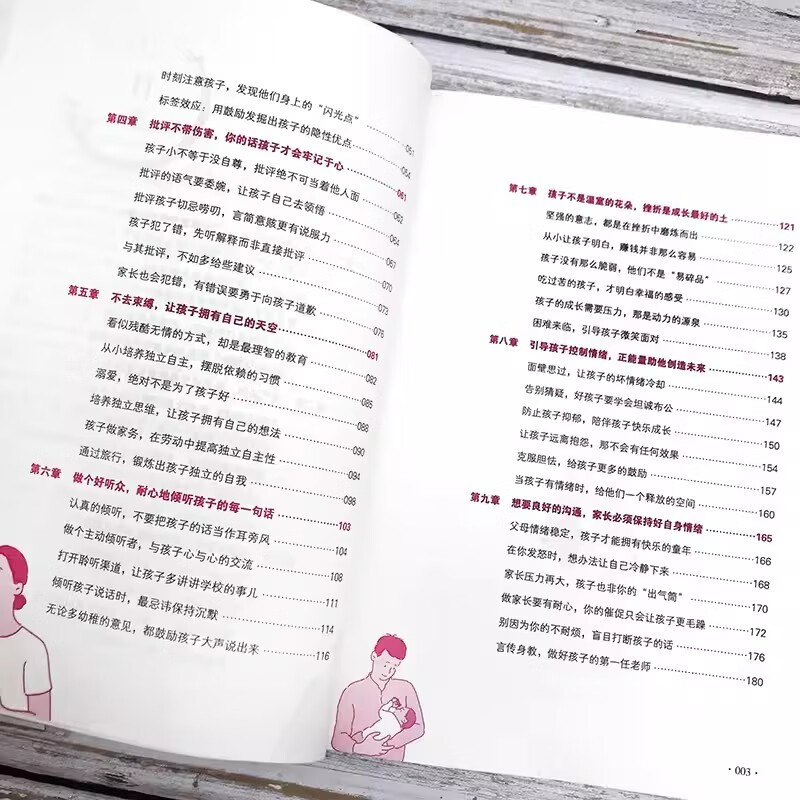 时刻注意孩子，发现他们身上的“闪光点” 051
标签效应：用鼓励发掘出孩子的隐性优点 054
第四章 批评不带伤害，你的话孩子才会牢记于心 061
孩子小不等于没自尊，批评绝不可当着他人面 062
批评的语气要委婉，让孩子自己去领悟 064
批评孩子切忌唠叨，言简意赅更有说服力 067
孩子犯了错，先听解释而非直接批评 070
与其批评，不如多给些建议 073
家长也会犯错，有错误要勇于向孩子道歉 076
第五章 不去束缚，让孩子拥有自己的天空 081
看似残酷无情的方式，却是最理智的教育 082
从小培养独立自主，摆脱依赖的习惯 085
溺爱，绝对不是为了孩子好 088
培养独立思维，让孩子拥有自己的想法 090
孩子做家务，在劳动中提高独立自主性 094
通过旅行，锻炼出孩子独立的自我 098
第六章 做个好听众，耐心地倾听孩子的每一句话 103
认真的倾听，不要把孩子的话当作耳旁风 104
做个主动倾听者，与孩子心与心的交流 108
打开聆听渠道，让孩子多讲讲学校的事儿 111
倾听孩子说话时，最忌讳保持沉默 114
无论多幼稚的意见，都鼓励孩子大声说出来 116
第七章 孩子不是温室的花朵，挫折是成长最好的土 121
坚强的意志，都是在挫折中磨炼而出 122
从小让孩子明白，赚钱并非那么容易 125
孩子没有那么脆弱，他们不是“易碎品” 127
吃过苦的孩子，才明白幸福的感受 130
孩子的成长需要压力，那是动力的源泉 135
困难来临，引导孩子微笑面对 138
第八章 引导孩子控制情绪，正能量助他创造未来 143
面壁思过，让孩子的坏情绪冷却 144
告别猜疑，好孩子要学会坦诚布公 147
防止孩子抑郁，陪伴孩子快乐成长 150
让孩子远离抱怨，那不会有任何效果 154
克服胆怯，给孩子更多的鼓励 157
当孩子有情绪时，给他们一个释放的空间 160
第九章 想要良好的沟通，家长必须保持好自身情绪 165
父母情绪稳定，孩子才能拥有快乐的童年 166
在你发怒时，想办法让自己冷静下来 168
家长压力再大，孩子也非你的“出气筒” 170
做家长要有耐心，你的催促只会让孩子更毛躁 172
别因为你的不耐烦，盲目打断孩子的话 176
言传身教，做好孩子的第一任老师 180
·003·